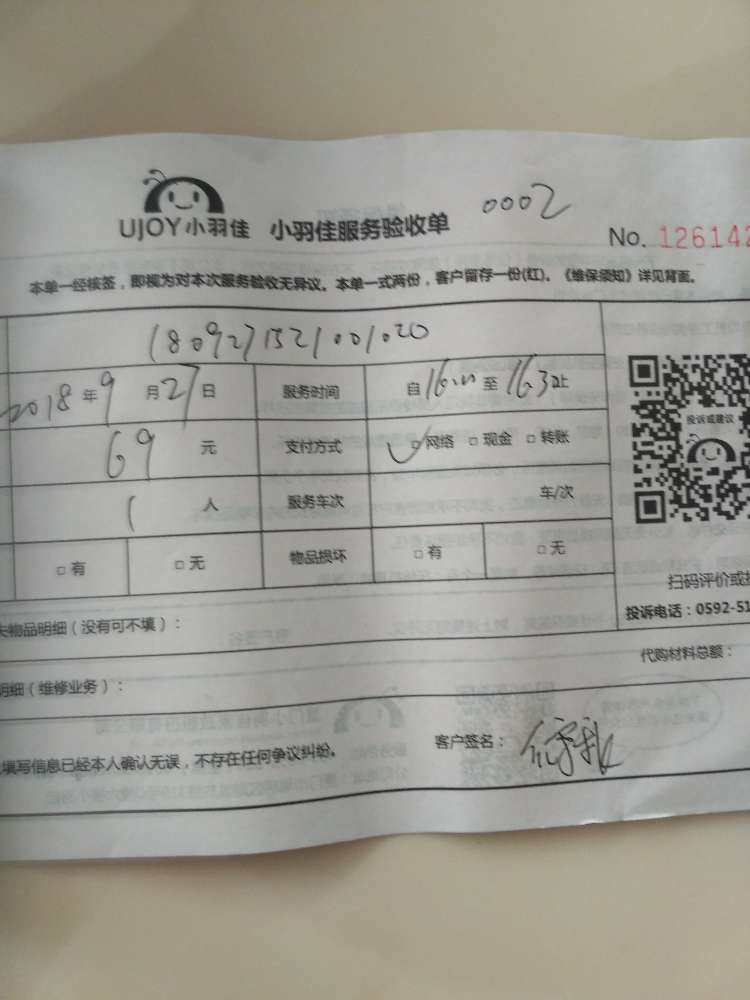 UJOY小羽佳 小羽佳服务验收单 0002
No. 126142
本单一经核签，即视为对本次服务验收无异议。本单一式两份，客户留存一份(红)。《维保须知》详见背面。
1809271521001020
2018年9月27日 服务时间 自16:00至16:30止
69元 支付方式 ☑网络 □现金 □转账
投诉或建议
1人 服务车次 车/次
□有 □无 物品损坏 □有 □无
扫码评价或
投诉电话：0592-51
物品明细（没有可不填）：
代购材料总额：
明细（维修业务）：
填写信息已经本人确认无误，不存在任何争议纠纷。 客户签名：